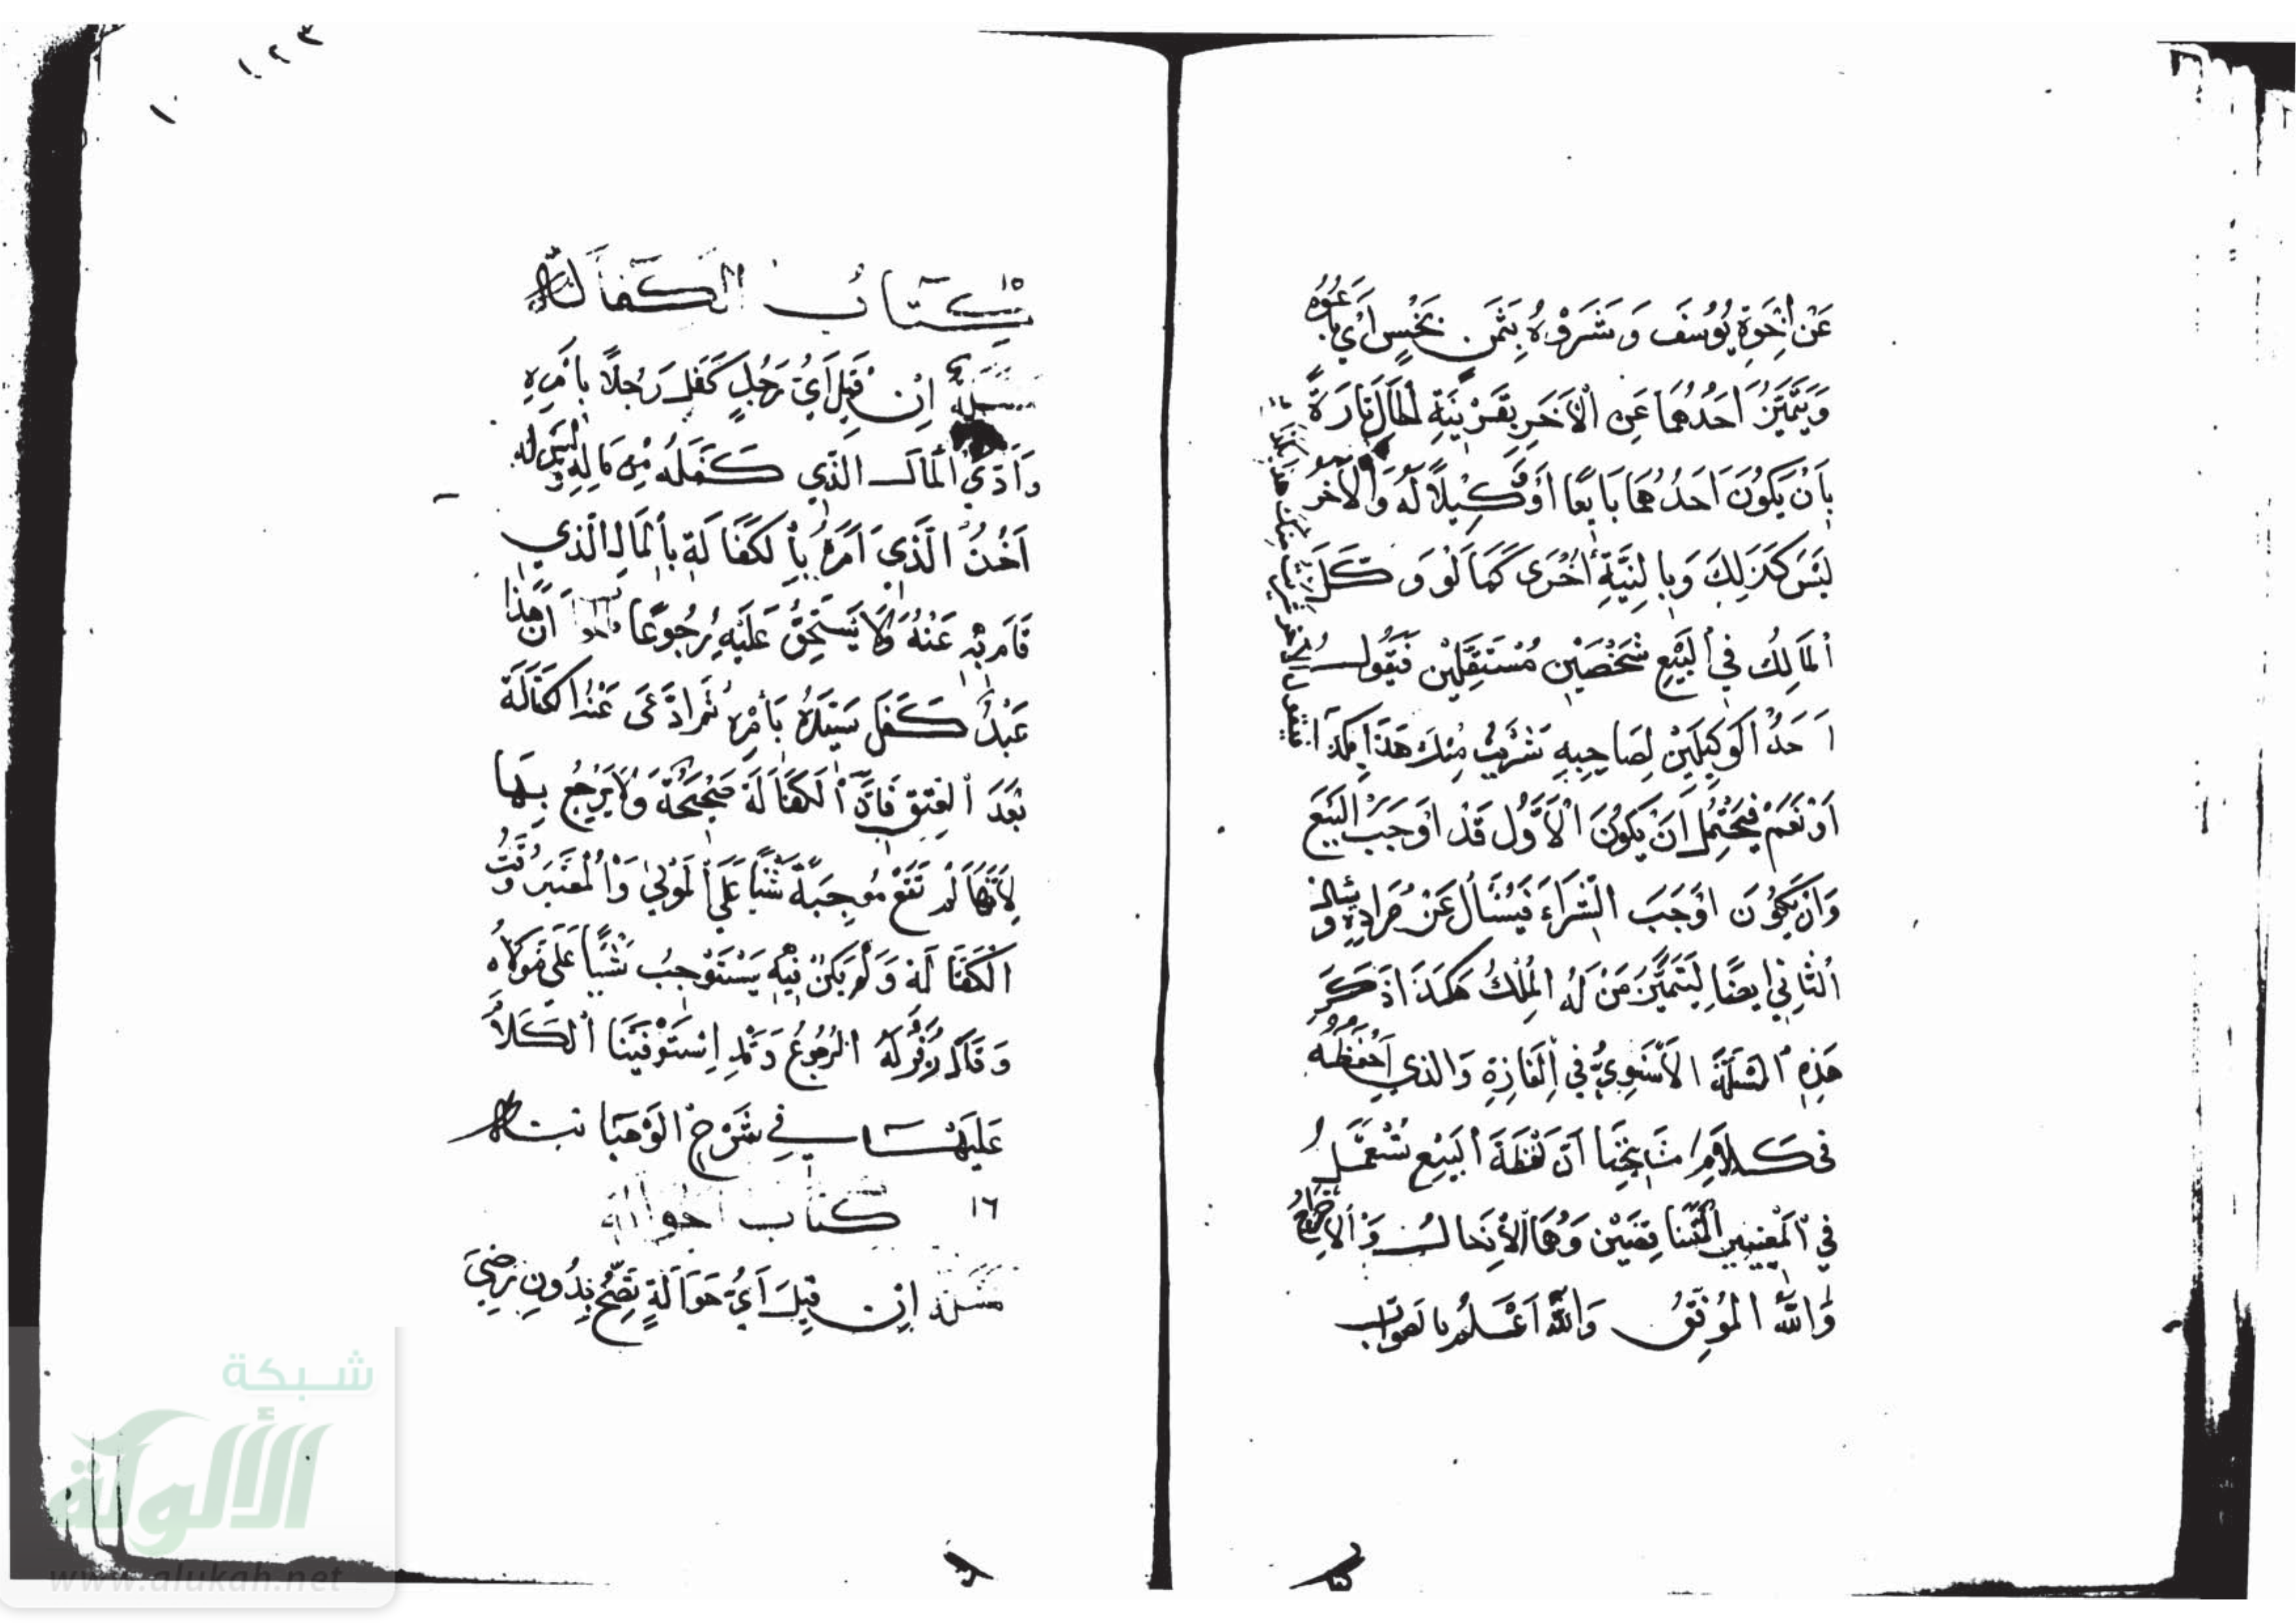 عَنْ اِخْوَةِ يُوسُفَ وَشَرَوْهُ بِثَمَنٍ بَخْسٍ اَيْ بَاعُوْهُ
وَيَتَمَيَّزُ اَحَدُهُمَا عَنِ الْاَخَرِ بِقَرِيْنَةِ الْحَالِ تَارَةً
بِاَنْ يَكُونَ اَحَدُهُمَا بَايِعًا اَوْ وَكِيْلاً لَهُ وَالْاَخَرُ
لَيْسَ كَذَلِكَ وَبِالنِيَّةِ اُخْرَى كَمَا لَوْ وَكَّلَ
الْمَالِكُ فِي الْبَيْعِ شَخْصَيْنِ مُسْتَقِلَّيْنِ فَيَقُولُ
اَحَدُ الْوَكِيلَيْنِ لِصَاحِبِهِ شَرَيْتُ مِنْكَ هَذَا بِكَذَا
اَوْ نَعَمْ فَيَحْتَمِلُ اَنْ يَكُونَ الْاَوَّلُ قَدْ اَوْجَبَ الْبَيْعَ
وَاَنْ يَكُونَ اَوْجَبَ الشِّرَاءَ فَيُسْأَلُ عَنْ مُرَادِهِ وَيُسْأَلُ
الثَّانِي اَيضًا لِيَتَمَيَّزَ مَنْ لَهُ الْمِلْكُ هَكَذَا ذَكَرَ
هَذِهِ الْمَسْئَلَةَ الْاَسْنَوِيُّ فِي اَلْغَازِهِ وَالَّذِي اَحْفَظُهُ
فِي كَلَامِ مَشَايِخِنَا اَنَّ لَفْظَةَ الْبَيْعِ تُسْتَعْمَلُ
فِي الْمَعْنَيَيْنِ الْمُتَنَاقِضَيْنِ وَهُمَا الْاِدْخَالُ وَالْاِخْرَاجُ
وَاللهُ الْمُوَفِّقُ وَاللهُ اَعْلَمُ بِالصَّوَابِ
١٠٢٣
١٠
١٥ كِتَابُ الْكَفَالَة
مَسْئَلَةٌ اِنْ قِيلَ اَيُّ رَجُلٍ كَفَلَ رَجُلاً بِاَمْرِهِ
وَاَدَّى الْمَالَ الَّذِي كَفَلَهُ مِنْ مَالِهِ وَلَيْسَ لَهُ
اَخْذُ الَّذِي اَمَرَهُ بِالْكَفَالَةِ بِالْمَالِ الَّذِي
قَامَ بِهِ عَنْهُ وَلَا يَسْتَحِقُّ عَلَيْهِ رُجُوعًا اَنَّ هَذَا
عَبْدٌ كَفَلَ سَيِّدَهُ بِاَمْرِهِ ثُمَّ اَدَّى عَنْهُ الْكَفَالَةَ
بَعْدَ الْعِتْقِ فَاِنَّ الْكَفَالَةَ صَحِيْحَةٌ وَلَا يَرْجِعُ بِهَا
لِاَنَّهَا لَمْ تَقَعْ مُوجِبَةً شَيْئًا عَلَى الْمَوْلَى وَالْمُعْتَبَرُ وَقْتُ
الْكَفَالَةِ وَلَمْ يَكُنْ فِيْهِ يَسْتَوْجِبُ شَيْئًا عَلَى مَوْلَاهُ
وَقَالَ زُفَرُ لَهُ الرُّجُوعُ وَقَدِ اِسْتَوْفَيْنَا الْكَلَامَ
عَلَيْهَا فِي شَرْحِ الْوَهْبَانِيَّة
١٦ كِتَابُ الْحَوَالَة
مَسْئَلَةٌ اِنْ قِيلَ اَيُّ حَوَالَةٍ تَصِحُّ بِدُونِ رِضَى
شبكة
الألوكة
www.alukah.net